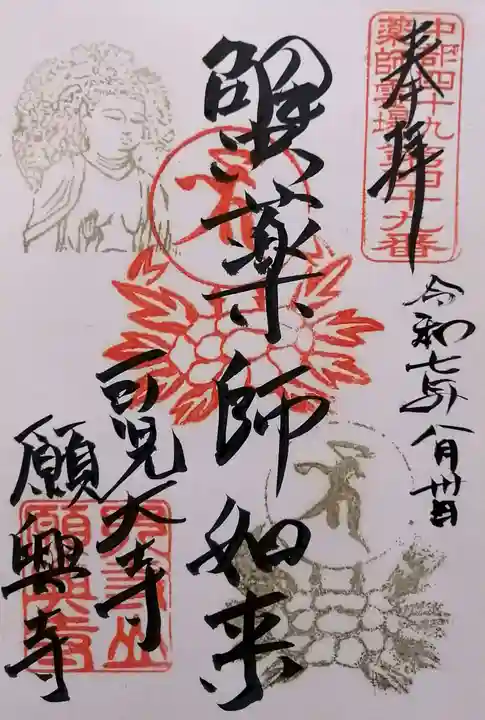 奉拝
中部四十九
薬師霊場
第四十九番
令和七年八月卅日
蟹薬師如来
可児大寺
願興寺
願興寺